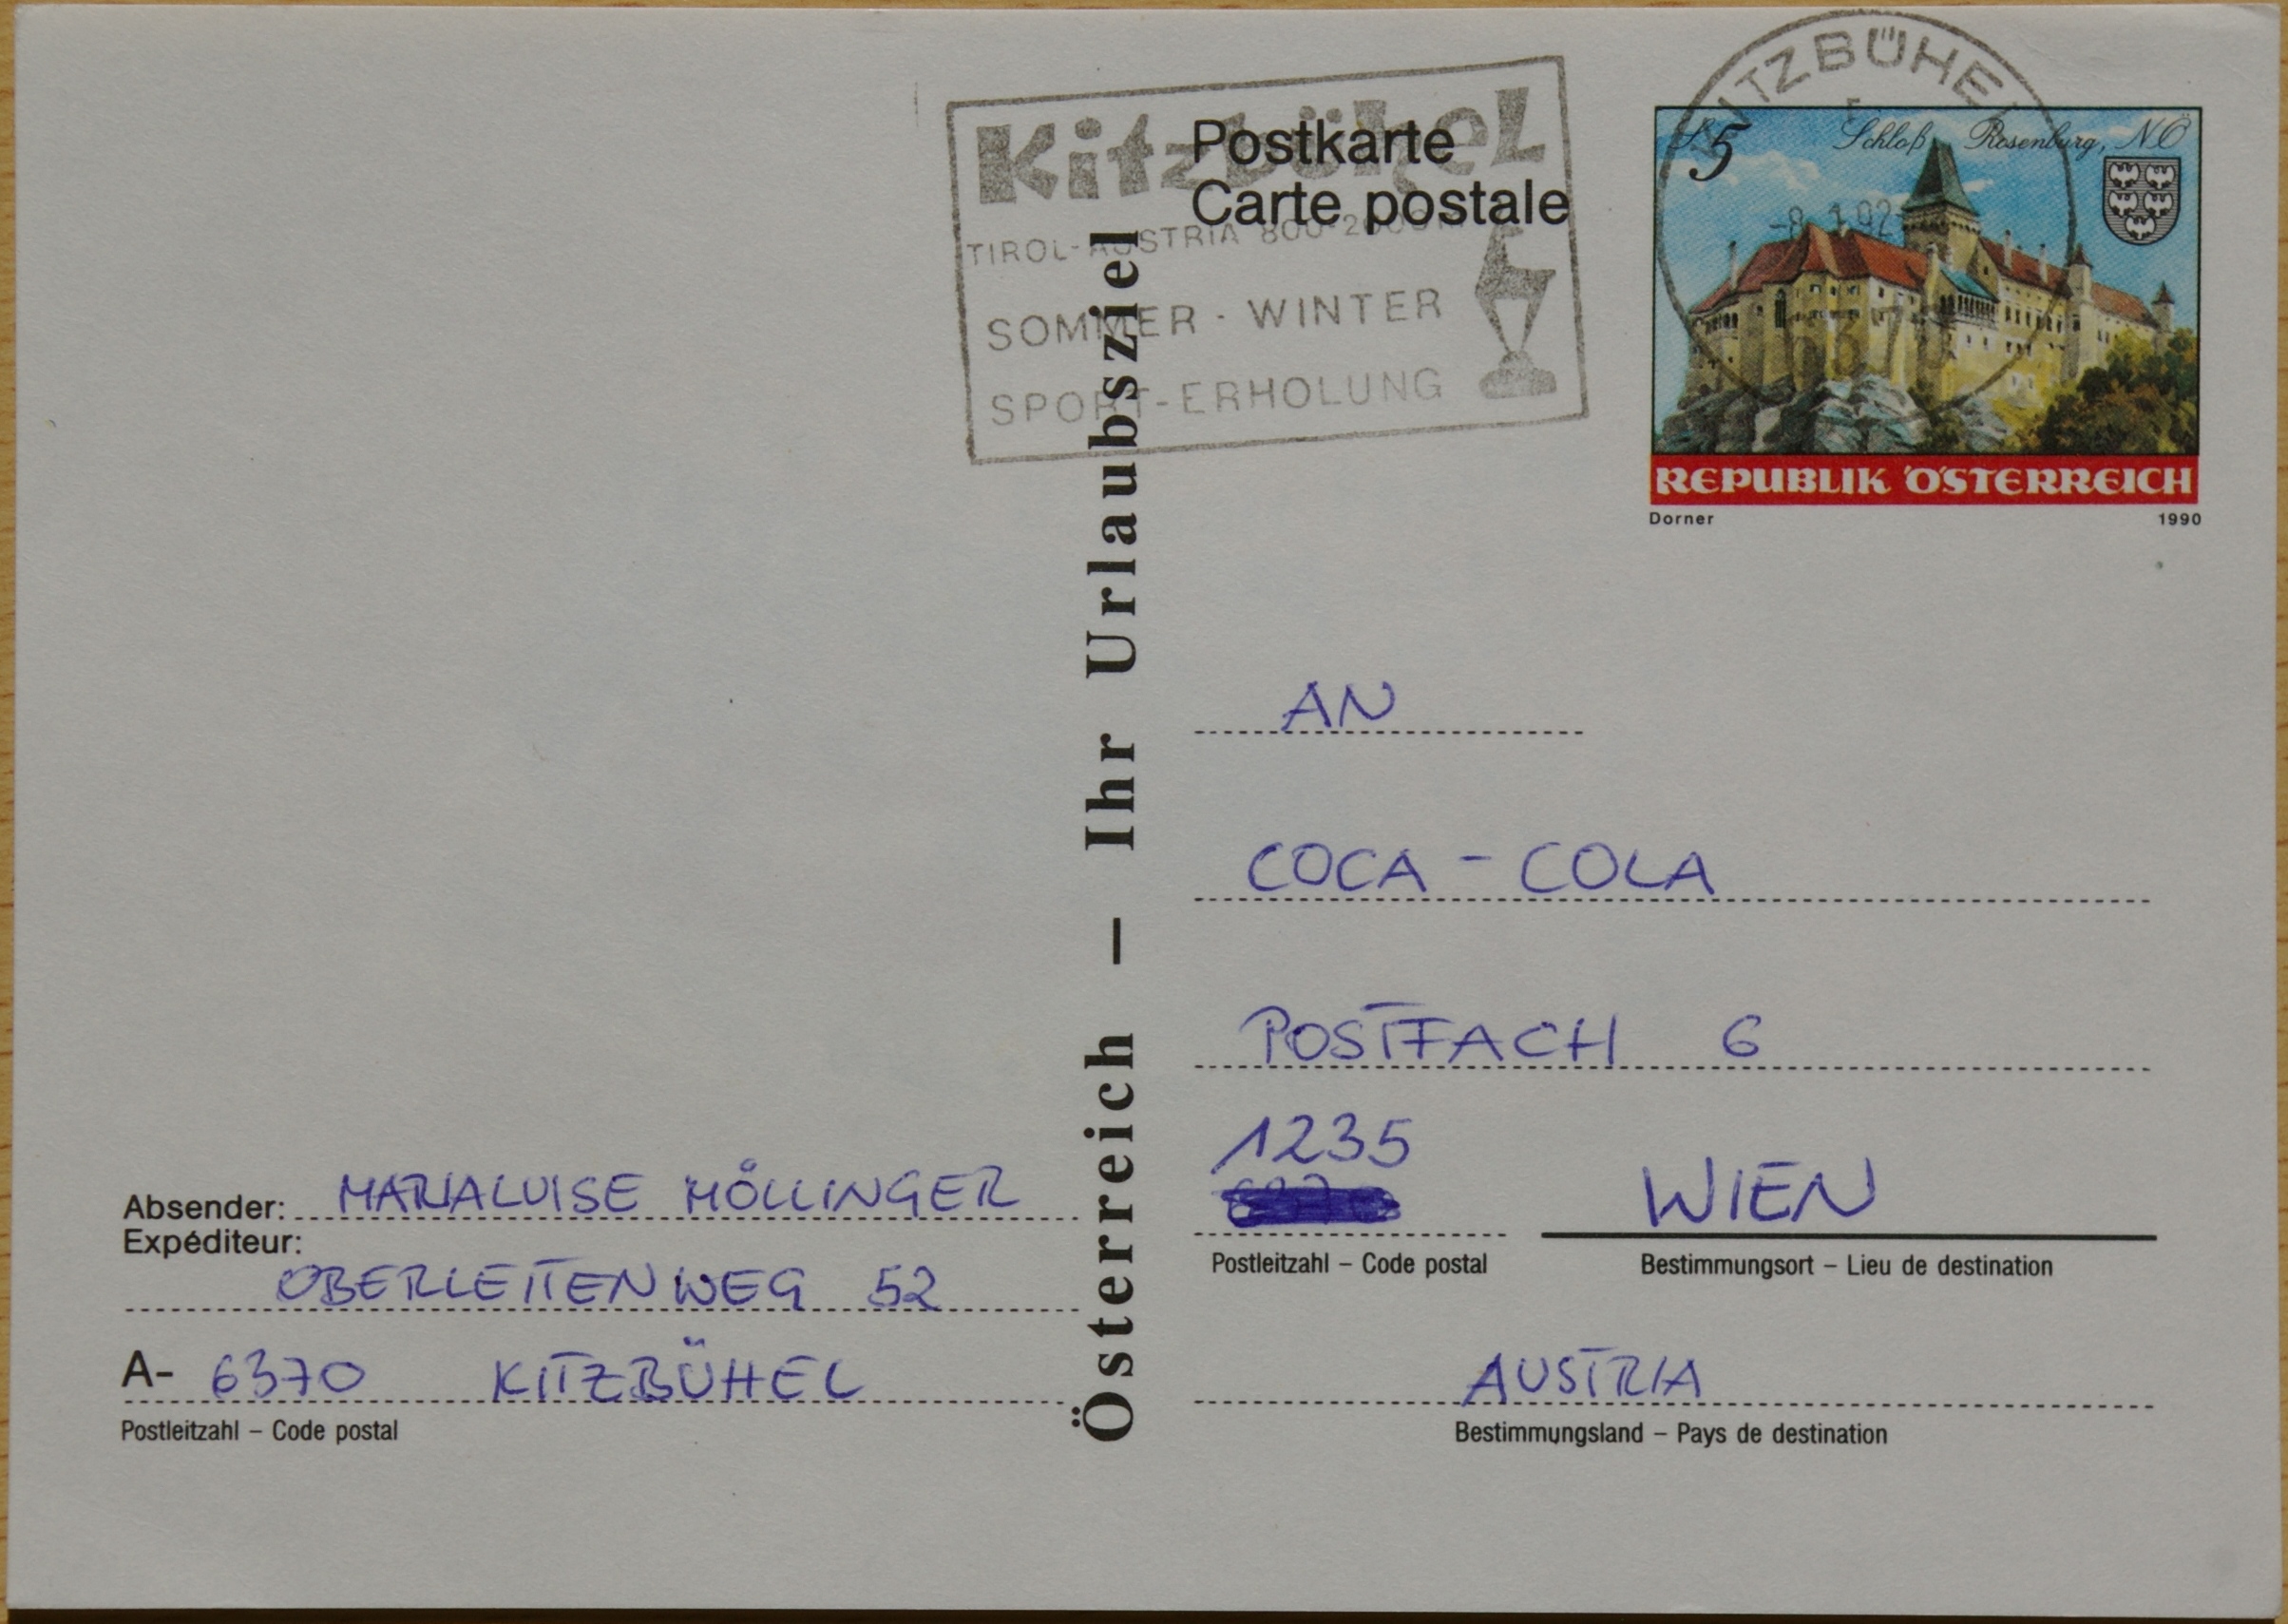 Kitzbühel
TIROL-AUSTRIA 800-2000m
SOMMER - WINTER
SPORT-ERHOLUNG
Postkarte
Carte postale
KITZBÜHEL
-8. 1.92
6370
S 5 Schloß Rosenburg, NÖ
REPUBLIK ÖSTERREICH
Dorner 1990
Österreich – Ihr Urlaubsziel
AN
COCA - COLA
POSTFACH 6
1235 WIEN
Postleitzahl – Code postal Bestimmungsort – Lieu de destination
AUSTRIA
Bestimmungsland – Pays de destination
Absender: MARIALUISE MÖLLINGER
Expéditeur:
OBERLEITENWEG 52
A- 6370 KITZBÜHEL
Postleitzahl – Code postal